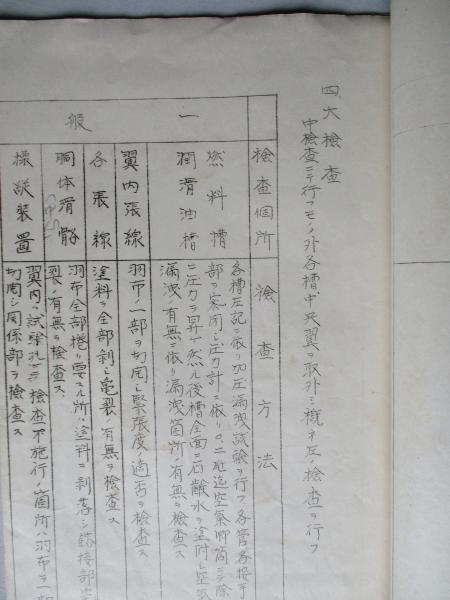 四、大檢査
中檢査ニテ行フモノノ外各槽、中央翼ヲ取外シ概ネ左ノ檢査ヲ行フ
檢査個所
檢査方法
一般
燃料槽
潤滑油槽
各槽左記ニ依リ加圧漏洩試驗ヲ行フ各管接手
部ヲ密閉シ圧力計ニ依リ〇.二瓩迄空氣喞筒ニテ除
ニ圧力ヲ昇ゲ然ル後槽全面ニ石鹸水ヲ塗附シ空気
漏洩ノ有無ニ依リ漏洩箇所ノ有無ヲ檢査ス
翼内張線
羽布ノ一部ヲ切開シ緊張度ノ適否ヲ檢査ス
各張線
塗料ヲ全部剥シ亀裂ノ有無ヲ檢査ス
胴体骨骼
羽布全部捲リ要スル所ハ塗料ヲ剥落シ鎔接部
裂ノ有無ヲ檢査ス
操縦装置
翼内ハ試驗孔ニテ檢査不施行ノ箇所ハ羽布ヲ一部
切開シ関係部ヲ檢査ス